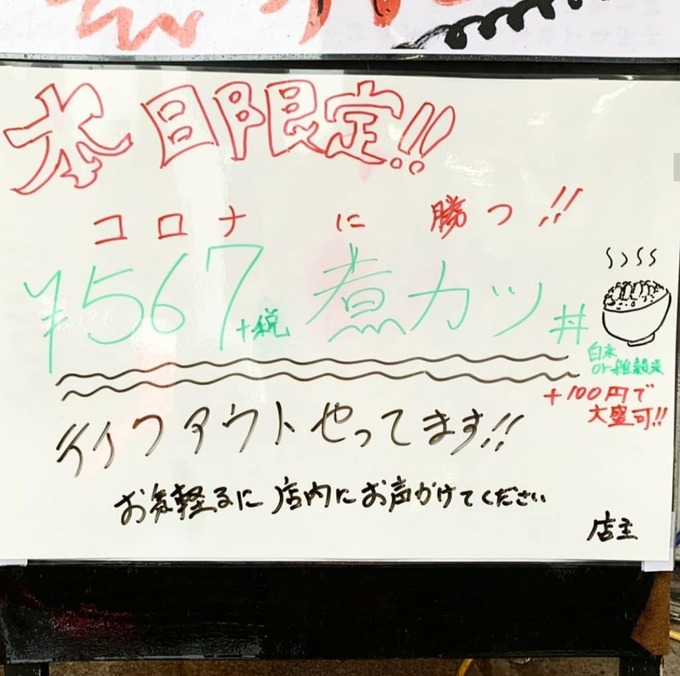 本日限定!!
コロナに勝つ!!
¥567+税 煮カツ丼
白米
or雑穀米
+100円で
大盛可!!
テイクアウトやってます!!
お気軽るに店内にお声がけてください
店主